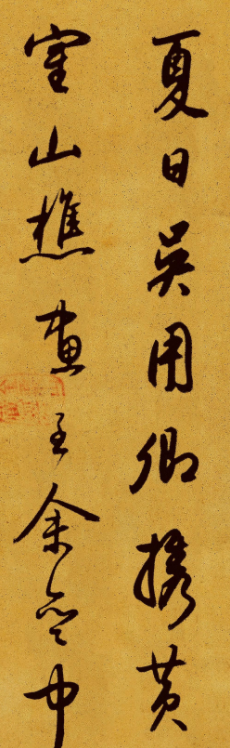 夏日吳用卿携黄
寉山樵畫至余齋中